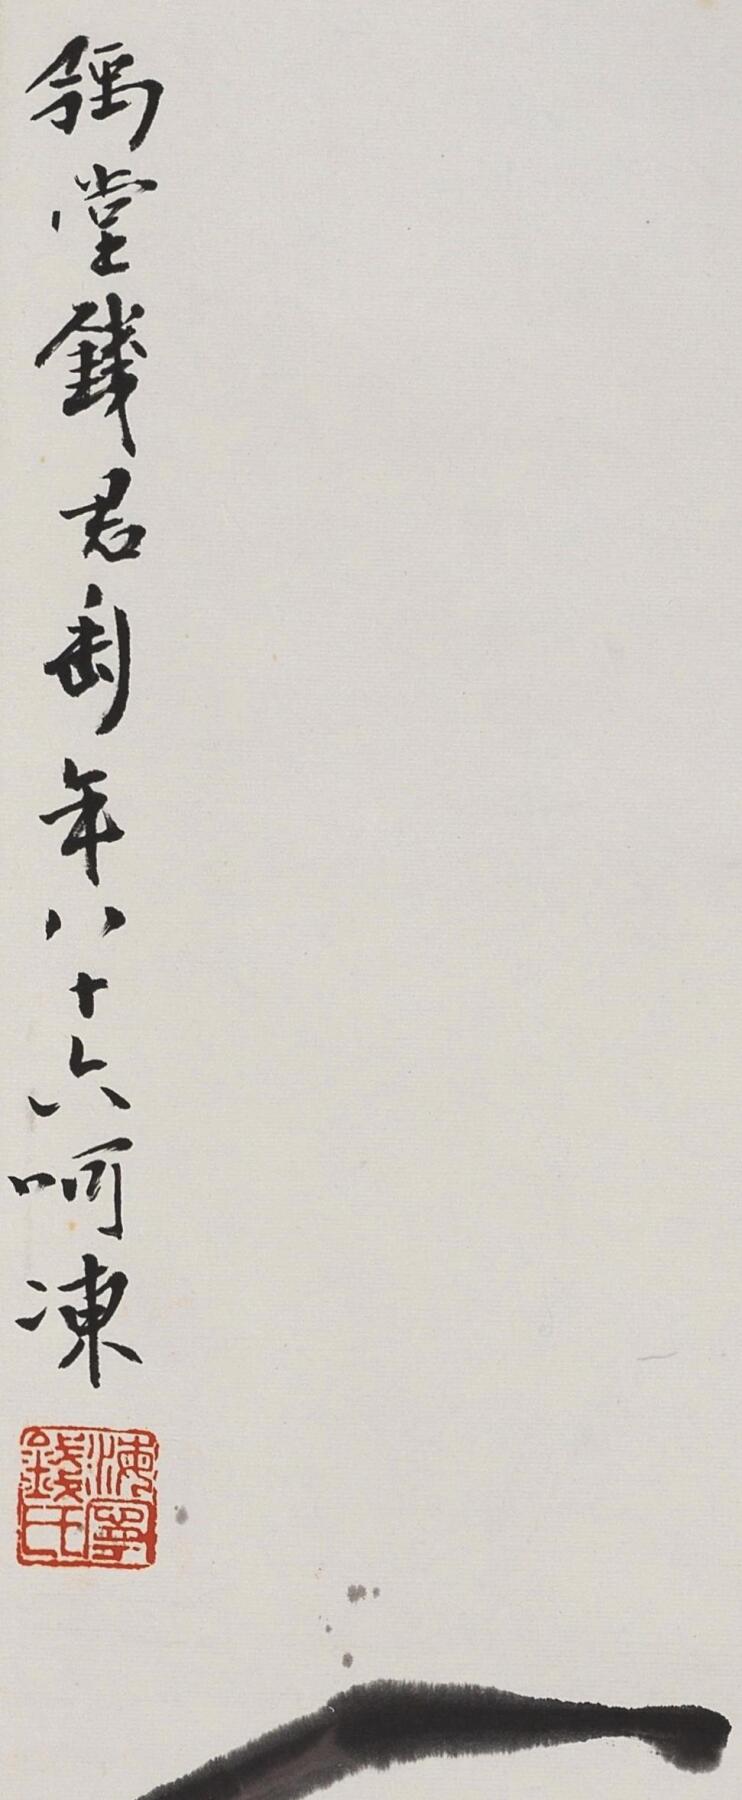 豫堂錢君匋年八十六呵凍
海寧錢氏